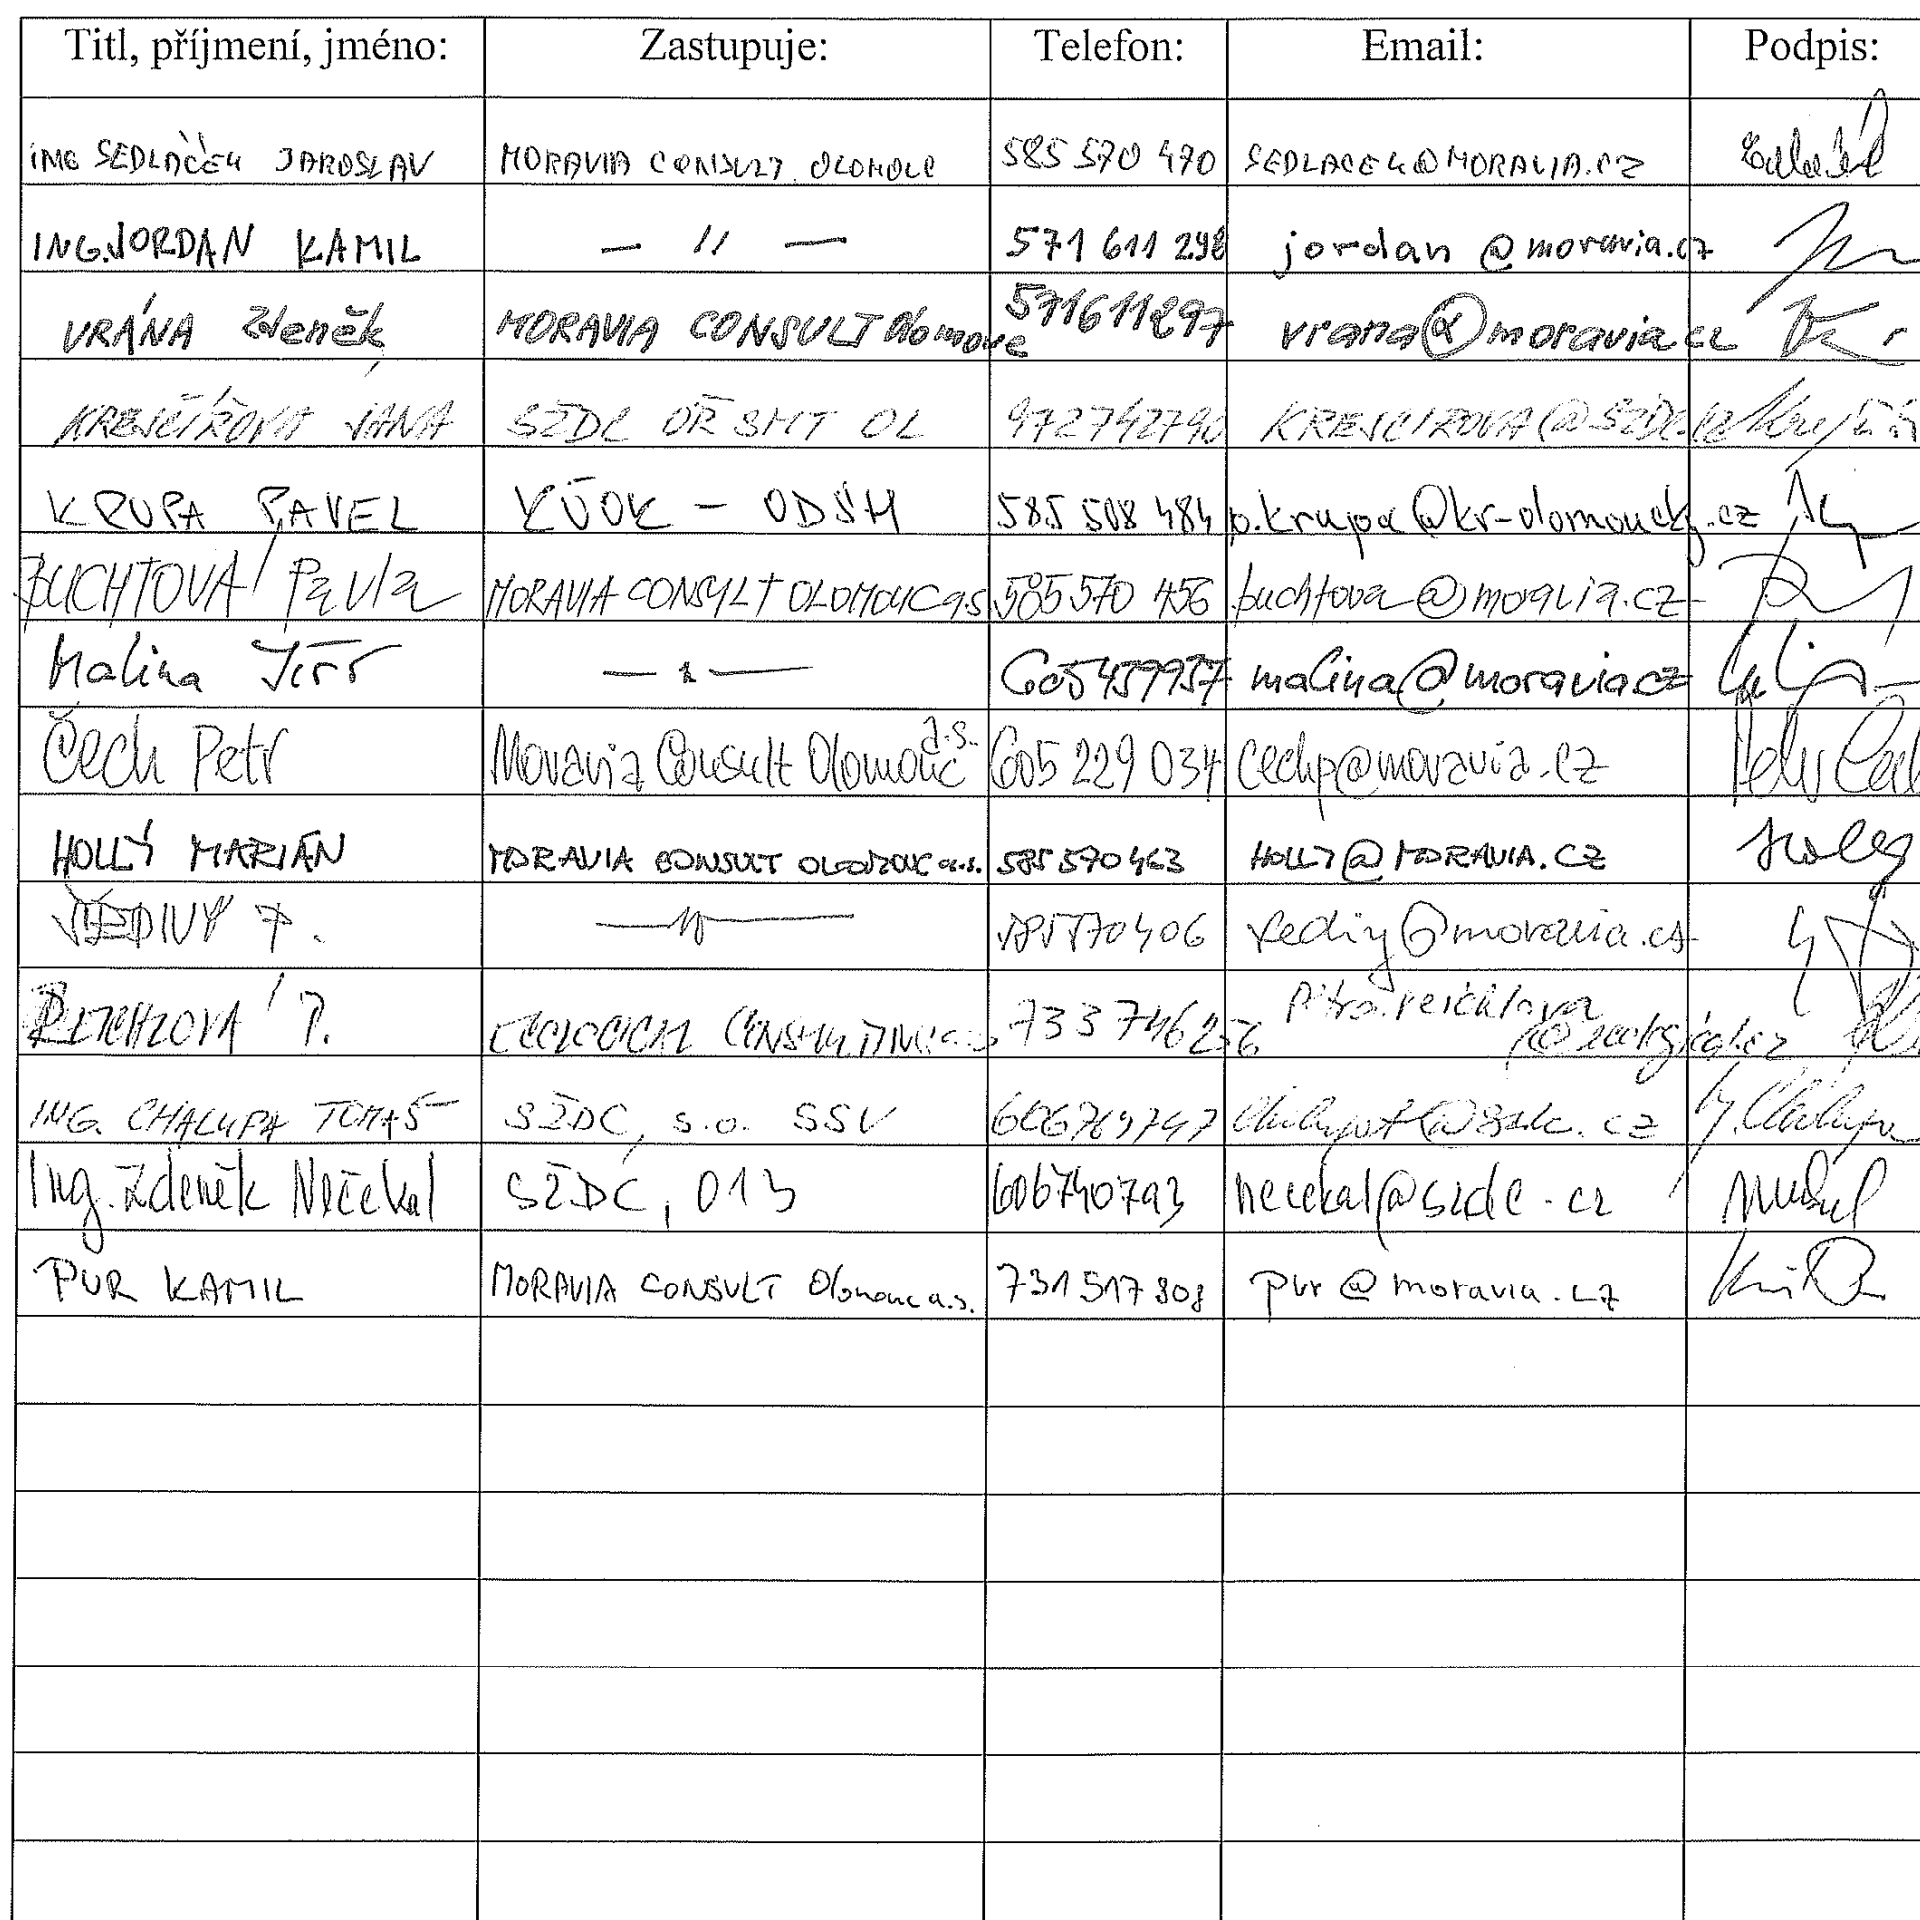 Titl, příjmení, jméno: Zastupuje: Telefon: Email: Podpis:
ING SEDLÁČEK JAROSLAV MORAVIA CONSULT OLOMOUC 585 570 470 SEDLACEK@MORAVIA.CZ
ING. JORDAN KAMIL — 〃 — 571 611 298 jordan@moravia.cz
VRÁNA Zdeněk MORAVIA CONSULT Olomouc 571611297 vrana@moravia.cz
KREJČÍŘOVÁ JANA SŽDC OŘ SMT OL 972742790 KREJCIROVA@SZDC.CZ
KRUPA PAVEL KÚOK - ODSH 585 508 484 p.krupa@kr-olomoucky.cz
BUCHTOVÁ Pavla MORAVIA CONSULT OLOMOUC a.s. 585 570 456 buchtova@moravia.cz
Malina Jiří — 〃 — 605459957 malina@moravia.cz
Čech Petr Moravia Consult Olomouc a.s. 605 229 034 cechp@moravia.cz Petr Čech
HOLLÝ MARIÁN MORAVIA CONSULT OLOMOUC a.s. 585 570 463 HOLLY@MORAVIA.CZ
ŠEDIVÝ P. — 〃 — 585570406 sedivy@moravia.cz
P. 733746256
@ecological.cz
ING. CHALUPA TOMÁŠ SŽDC, s.o. SSV
Ing. Zdeněk Nečekal SŽDC, 013 606740793 necekal@szdc.cz
PUR KAMIL MORAVIA CONSULT Olomouc a.s. 731 517 808 pur@moravia.cz